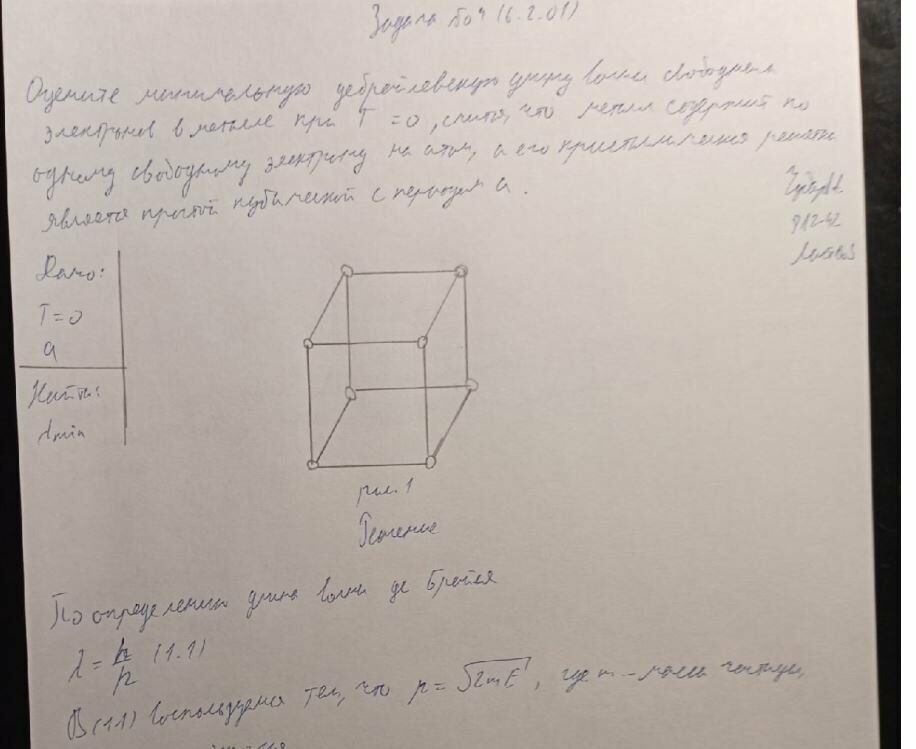 Задача №4 (6.2.01)
Оцените минимальную дебройлевскую длину волны свободных
электронов в металле при T = 0, считая, что металл содержит по
одному свободному электрону на атом, а его кристаллическая решетка
является простой кубической с периодом a.
912-42
Дано:
T = 0
a
Найти:
λmin
рис. 1
Решение
По определению длина волны де Бройля
λ = h/p (1.1)
В (1.1) воспользуемся тем, что p = √2mE, где m - масса частицы,